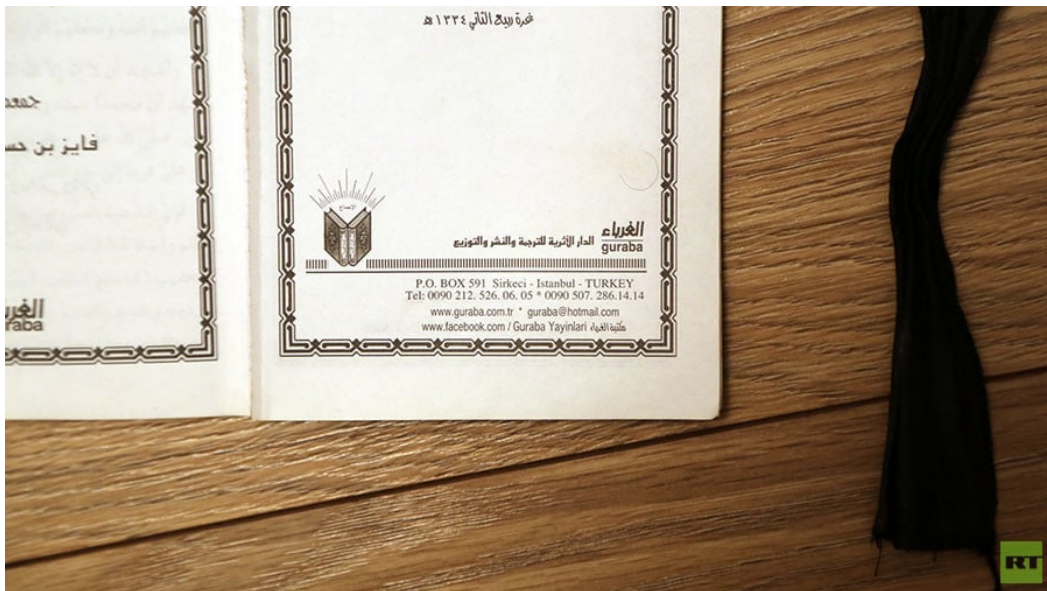 جمعه
فايز بن
الغرباء
raba
غرة ربيع الثاني ١٣٣٤ هـ
الإجماع
الغرباء
guraba
الدار الأثرية للترجمة والنشر والتوزيع
P.O. BOX 591 Sirkeci - Istanbul - TURKEY
Tel: 0090 212. 526. 06. 05 * 0090 507. 286.14.14
www.guraba.com.tr * guraba@hotmail.com
www.facebook.com / Guraba Yayinlari مكتبة الغرباء
RT